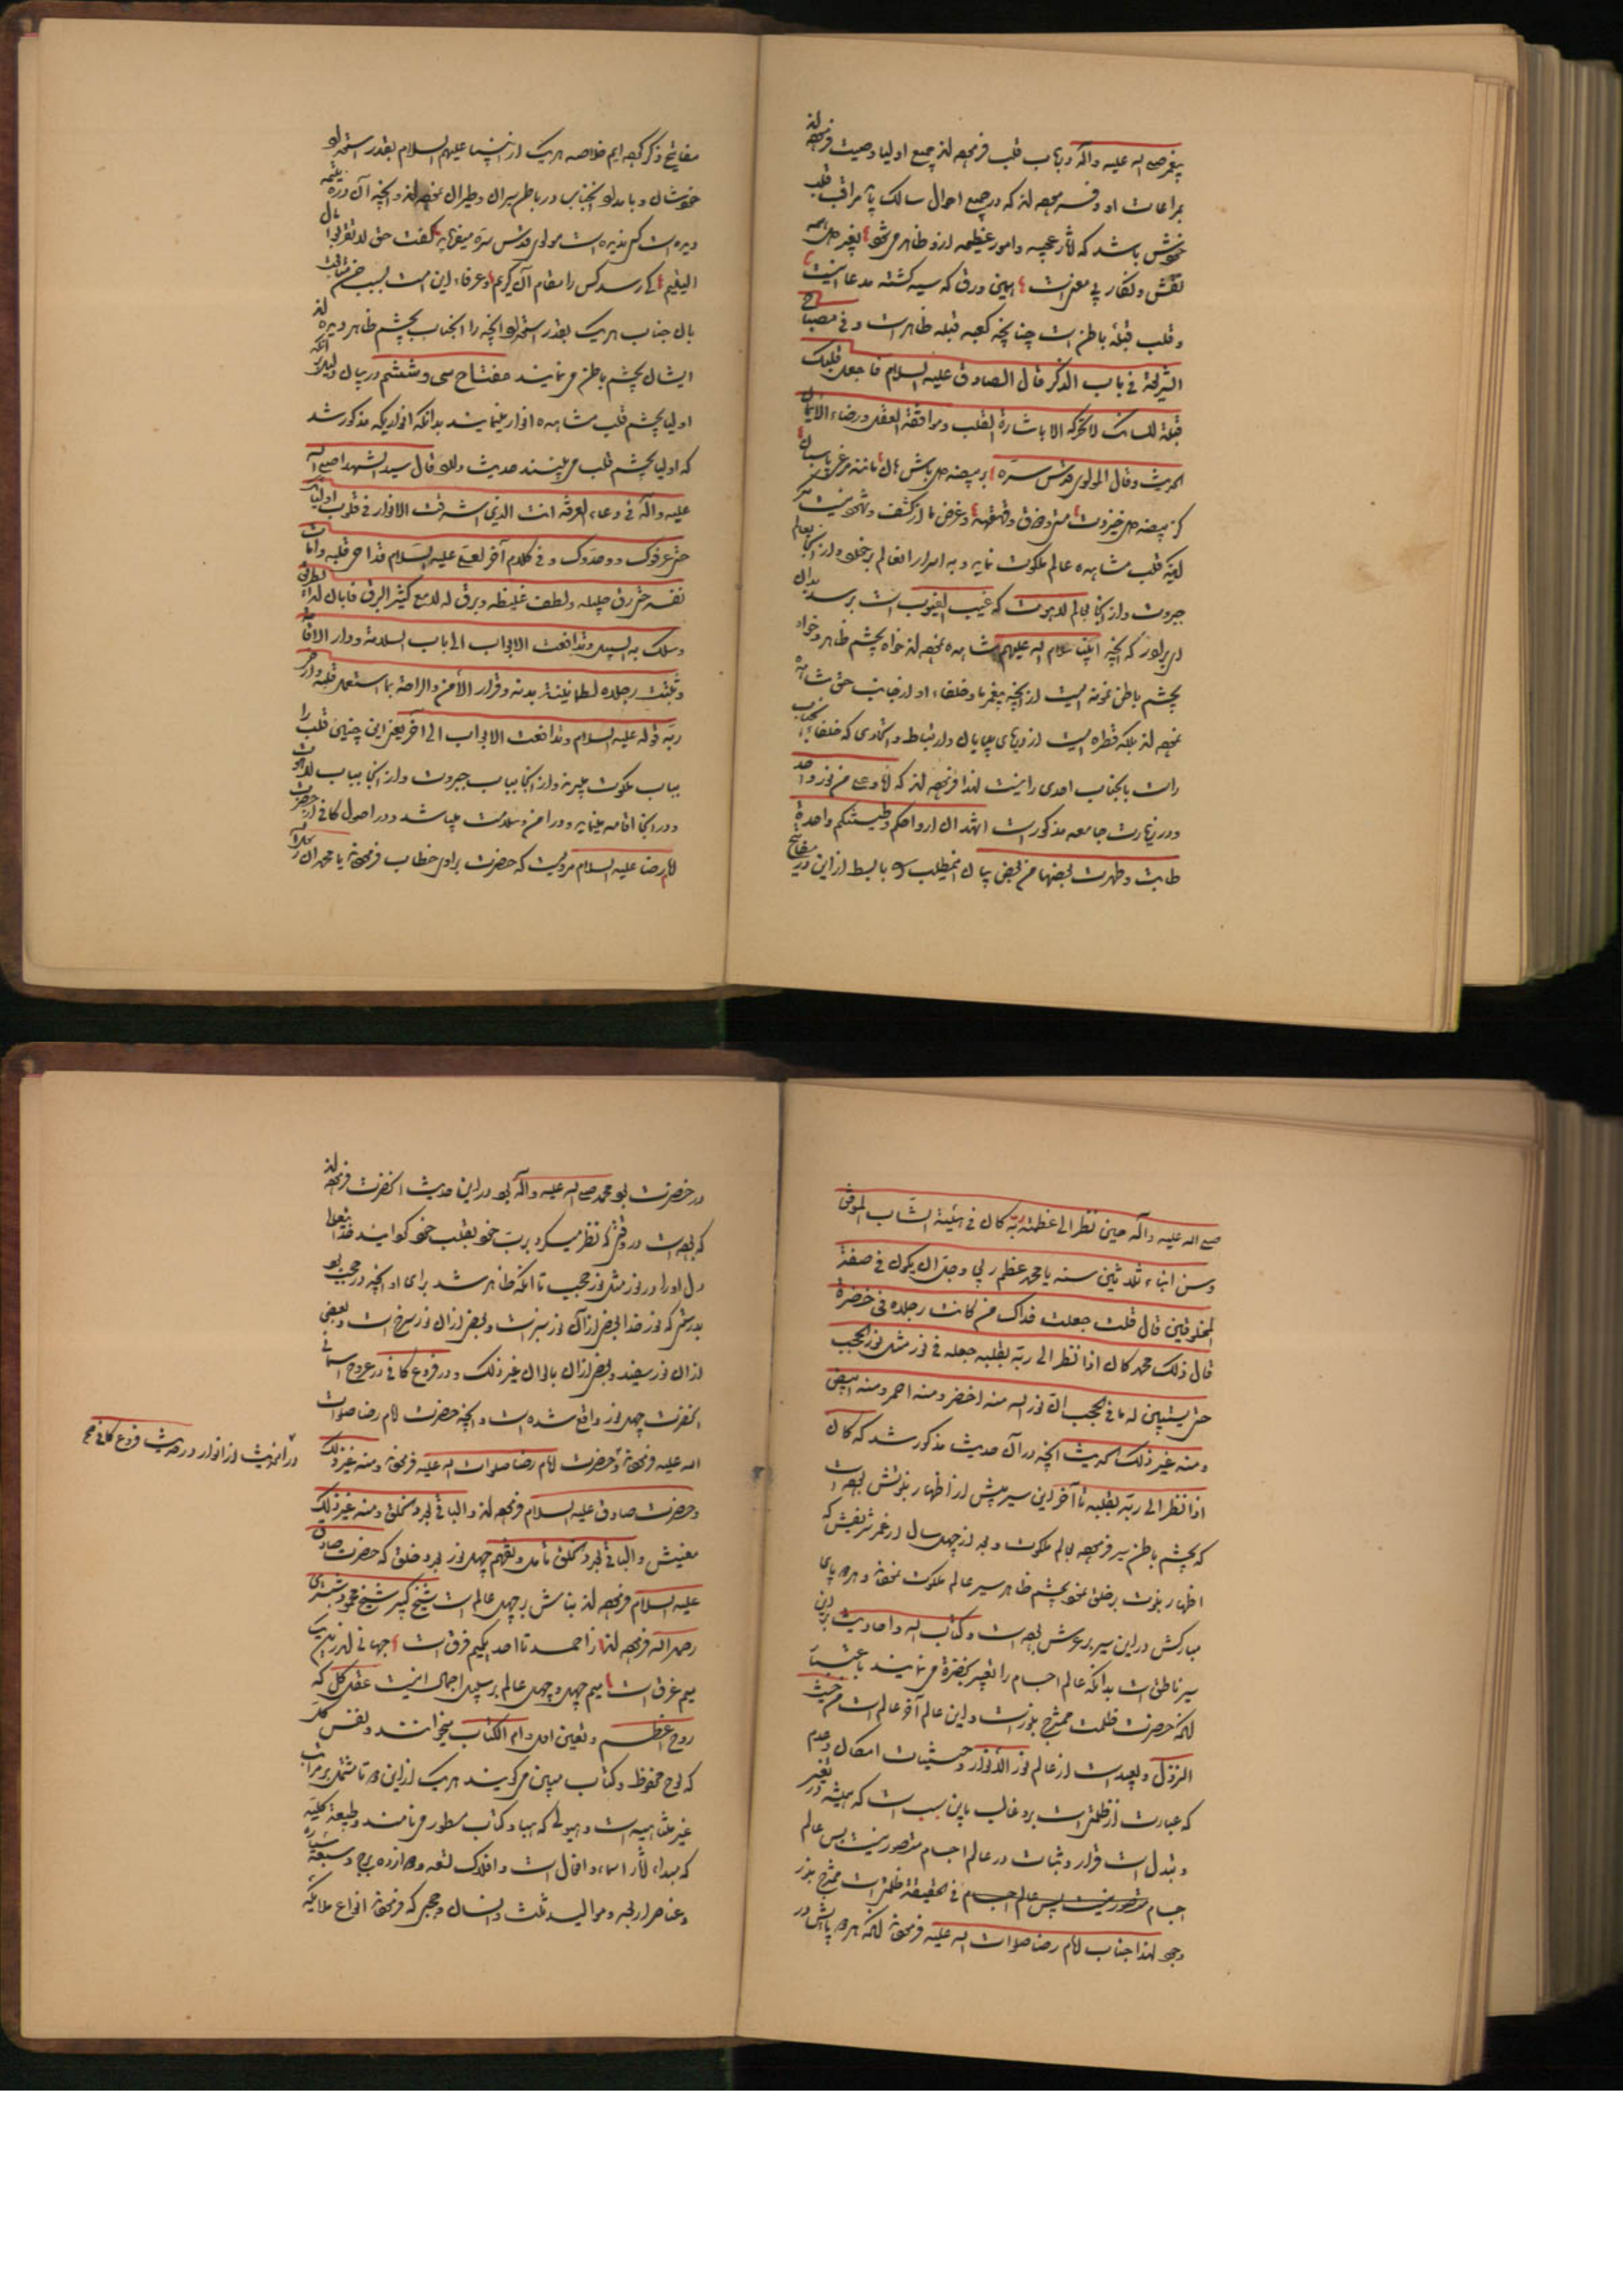 پیغمبر صلی الله علیه وآله در باب قلب فرموده‌اند جمیع اولیا وصیت فرموده‌اند
بمراعات او که در جمیع احوال سالک باید مراقب قلب
خویش باشد که آثار عجیبه و امور عظیمه ازو ظاهر می‌شود
نقش و نگار بی معنی است همین ورق که سیه کشته مدعا اینست
و قلب قبلهٔ باطن است چنانچه کعبه قبله ظاهر است و فی مصباح
الشریعة فی باب الذکر قال الصادق علیه السلام فاجعل قلبک
قبلة للسانک لا تحرکه الا باشارة القلب وموافقة العقل ورضاء الایمان
الحدیث وقال المولوی قدس سره بر بیضه دل باش مانند مرغ پاسبان
کز بیضه دل خیزدت مستی و ذوق و قهقهه و غرض ما از کشف و شهود
که قلب مشاهده عالم ملکوت نماید و به اسرار انعالم برخورد و از آنجا بعالم
جبروت و از آنجا بعالم لاهوت که غیب الغیوب است برسد بدان
ای برادر که آنچه انبیا سلام الله علیهم مشاهده نموده‌اند خواه بچشم ظاهر و خواه
بچشم باطن نمونه ایست از آنچه پیغمبر ما و خلفاء او از جناب حق مشاهده
نموده‌اند بلکه قطره ایست از دریای بی‌پایان و ارتباط و اتحادی که خلفاء آنجناب
راست بانجناب احدی را نیست لهذا فرموده‌اند که انا و علی من نور واحد
و در زیارت جامعه مذکور است اشهد ان ارواحکم وطینتکم واحدة
طابت وطهرت بعضها من بعض بیان اینمطلب را بابسط ازاین در مفاتیح
مفاتیح ذکر کرده‌ایم خلاصه هریک از انبیا علیهم السلام بقدر استعداد
خودشان و بامداد آنجناب در باطن سیران و طیران نموده‌اند و آنچه آن در یتیم
دیده است کس ندیده است مولوی قدس سره میفرماید گفت حق لا تقربوا مال
الیتیم کی رسد کس را مقام آن کریم و عرفاء این امت بسبب حسن متابعت
بان جناب هریک بقدر استعداد آنچه را آنجناب بچشم ظاهر دیده‌اند
ایشان بچشم باطن می‌نمایند مفتاح سی و ششم در بیان دلیل بر آنکه
اولیا بچشم قلب مشاهده انوار مینمایند بدانکه انواریکه مذکور شد
که اولیا بچشم قلب می‌بینند حدیث قال سید الشهدا صلی الله
علیه وآله فی دعاء العرفة انت الذی اشرقت الانوار فی قلوب اولیائک
حتی عرفوک ووحدوک وفی کلام آخر لعلی علیه السلام قد احیی قلبه وامات
نفسه حتی دق جلیله ولطف غلیظه وبرق له لامع کثیر البرق فابان له الطریق
وسلک به السبیل وتدافعت الابواب الی باب السلامة ودار الاقامة
وثبتت رجلاه لطمانینة بدنه وقرار الامن والراحة بما استعمل قلبه وارضی
ربه قوله علیه السلام وتدافعت الابواب الی آخر یعنی این چنین قلب را
بباب ملکوت میبرند و از آنجا بباب جبروت و از آنجا بباب لاهوت
و در انجا اقامه مینماید و در امن و سلامت میباشد و در اصول کافی از حضرت
امام رضا علیه السلام مرویست که حضرت براوی خطاب فرمودند یا محمد ان رسول الله
صلی الله علیه وآله حین نظر الی عظمة ربه کان فی هیئة الشاب الموفق
وسن ابناء ثلاثین سنة یا محمد عظم ربی وجل ان یکون فی صفة
المخلوقین قال قلت جعلت فداک من کانت رجلاه فی خضرة
قال ذلک محمد کان اذا نظر الی ربه بقلبه جعله فی نور مثل نور الحجب
حتی یستبین له ما فی الحجب ان نور الله منه اخضر ومنه احمر ومنه ابیض
ومنه غیر ذلک الحدیث آنچه در آن حدیث مذکور شد که کان
اذا نظر الی ربه بقلبه تا آخر این سیر پیش از اظهار نبوتش بوده است
که بچشم باطن سیر فرموده بعالم ملکوت و بعد از چهل سال از عمر شریفش که
اظهار نبوت بر خلق نمود بچشم ظاهر سیر عالم ملکوت نمودند و هر دو پای
مبارکش در این سیر بر عرش بوده است و کتاب الله و احادیث بر این
سیر ناطق است بدانکه عالم اجسام را تعبیر بخضرة می‌نمایند باعتبار
انکه خضرت ظلمت ممتزج بنور است و این عالم آخر عالم است من حیث
النزول و بعید است از عالم نور الانوار و حیثیات امکان و عدم
که عبارت از ظلمتی است برو غالب باین سبب است که همیشه در تغیر
و تبدل است قرار و ثبات در عالم اجسام متصور نیست پس عالم
اجسام متصور نیست پس عالم اجسام فی الحقیقة ظلمتی است ممتزج بنور
وجود لهذا جناب امام رضا صلوات الله علیه فرمودند انکه هر دو پایش در
در خضرت بود محمد صلی الله علیه وآله بود در این حدیث انحضرت فرموده‌اند
که بوده است در وقتی که نظر میکرد برب خود بقلب خود خدایتعالی
دل او را در نور مثل نور حجب تا انکه ظاهر شد برای او آنچه در حجب بود
بدرستی که نور خدا بعضی از آن نور سبز است و بعضی از آن نور سرخ است و بعضی
از ان نور سفید و بعضی از ان بالوان غیر ذلک و در فروع کافی در عروج آسمانی
انحضرت چهل نور واقع شده است و آنچه حضرت امام رضا صلوات
الله علیه فرمودند و حضرت امام رضا صلوات الله علیه فرمودند ومنه غیر ذلک
و حضرت صادق علیه السلام فرموده‌اند و الباقی بعدد الخلق ومنه غیر ذلک
معنیش و الباقی بعدد الخلق تامل و تفهم چهل نور بعدد خلق که حضرت صادق
علیه السلام فرموده‌اند بنایش بر چهل عالم است شیخ کبیر شیخ محمود شبستری
رحمه الله فرموده‌اند ز احمد تا احد یکمیم فرق است جهانی اندرین یک
میم غرق است میم چهل و چهل عالم بر سبیل اجمال اینست عقل کل که
روح اعظم و تعین اول و ام الکتاب میخوانند و نفس کل
که لوح محفوظ و کتاب مبین می‌گویند هریک از این دو تا مشتمل بر مراتب
غیر متناهیه است و هیولی که هبا و کتاب مسطور می‌نامند و طبیعة کلیه
که مبداء آثار اسماء و افعال است و افلاک تسعه و دوازده برج و سبعه سیاره
و عناصر اربعه و موالید ثلث و انسان و که فرمودند انواع ملایکه
در انحدیث از انوار در حدیث فروع کافی